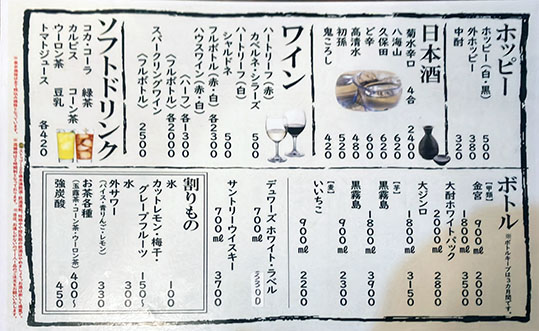 ホッピー
ホッピー(白・黒) 500
外ホッピー 380
中酎 320
日本酒
菊水辛口 4合 2400
八海山 620
久保田 620
ど辛 600
高清水 480
初孫 520
鬼ころし 420
ワイン
ハートリーフ(赤)
カベルネ・シラーズ 500
ハートリーフ(白)
シャルドネ 500
フルボトル(赤・白) 各2300
ハウスワイン(赤・白)
(ハーフ) 各1300
(フルボトル) 各2000
スパークリングワイン
(フルボトル) 2500
ソフトドリンク
コカ・コーラ 緑茶
カルピス コーン茶
ウーロン茶 豆乳
トマトジュース 各420
ボトル
※ボトルキープは3カ月間です。
【甲類】
金宮 900㎖ 2000
3500
大酎ホワイトパック 2800
大ジンロ 1800㎖ 3150
【芋】
黒霧島 1800㎖ 3900
黒霧島 900㎖ 2300
【麦】
いいちこ 900㎖ 2200
デュワーズ ホワイト・ラベル
700㎖
サントリーウイスキー
700㎖ 3700
割りもの
氷 100
カットレモン・梅干・
グレープフルーツ 150~
水 300
外サワー 330
(バイス・青りんご・レモン)
お茶各種 400~
(玉露茶・コーン茶・ウーロン茶)
強炭酸 450